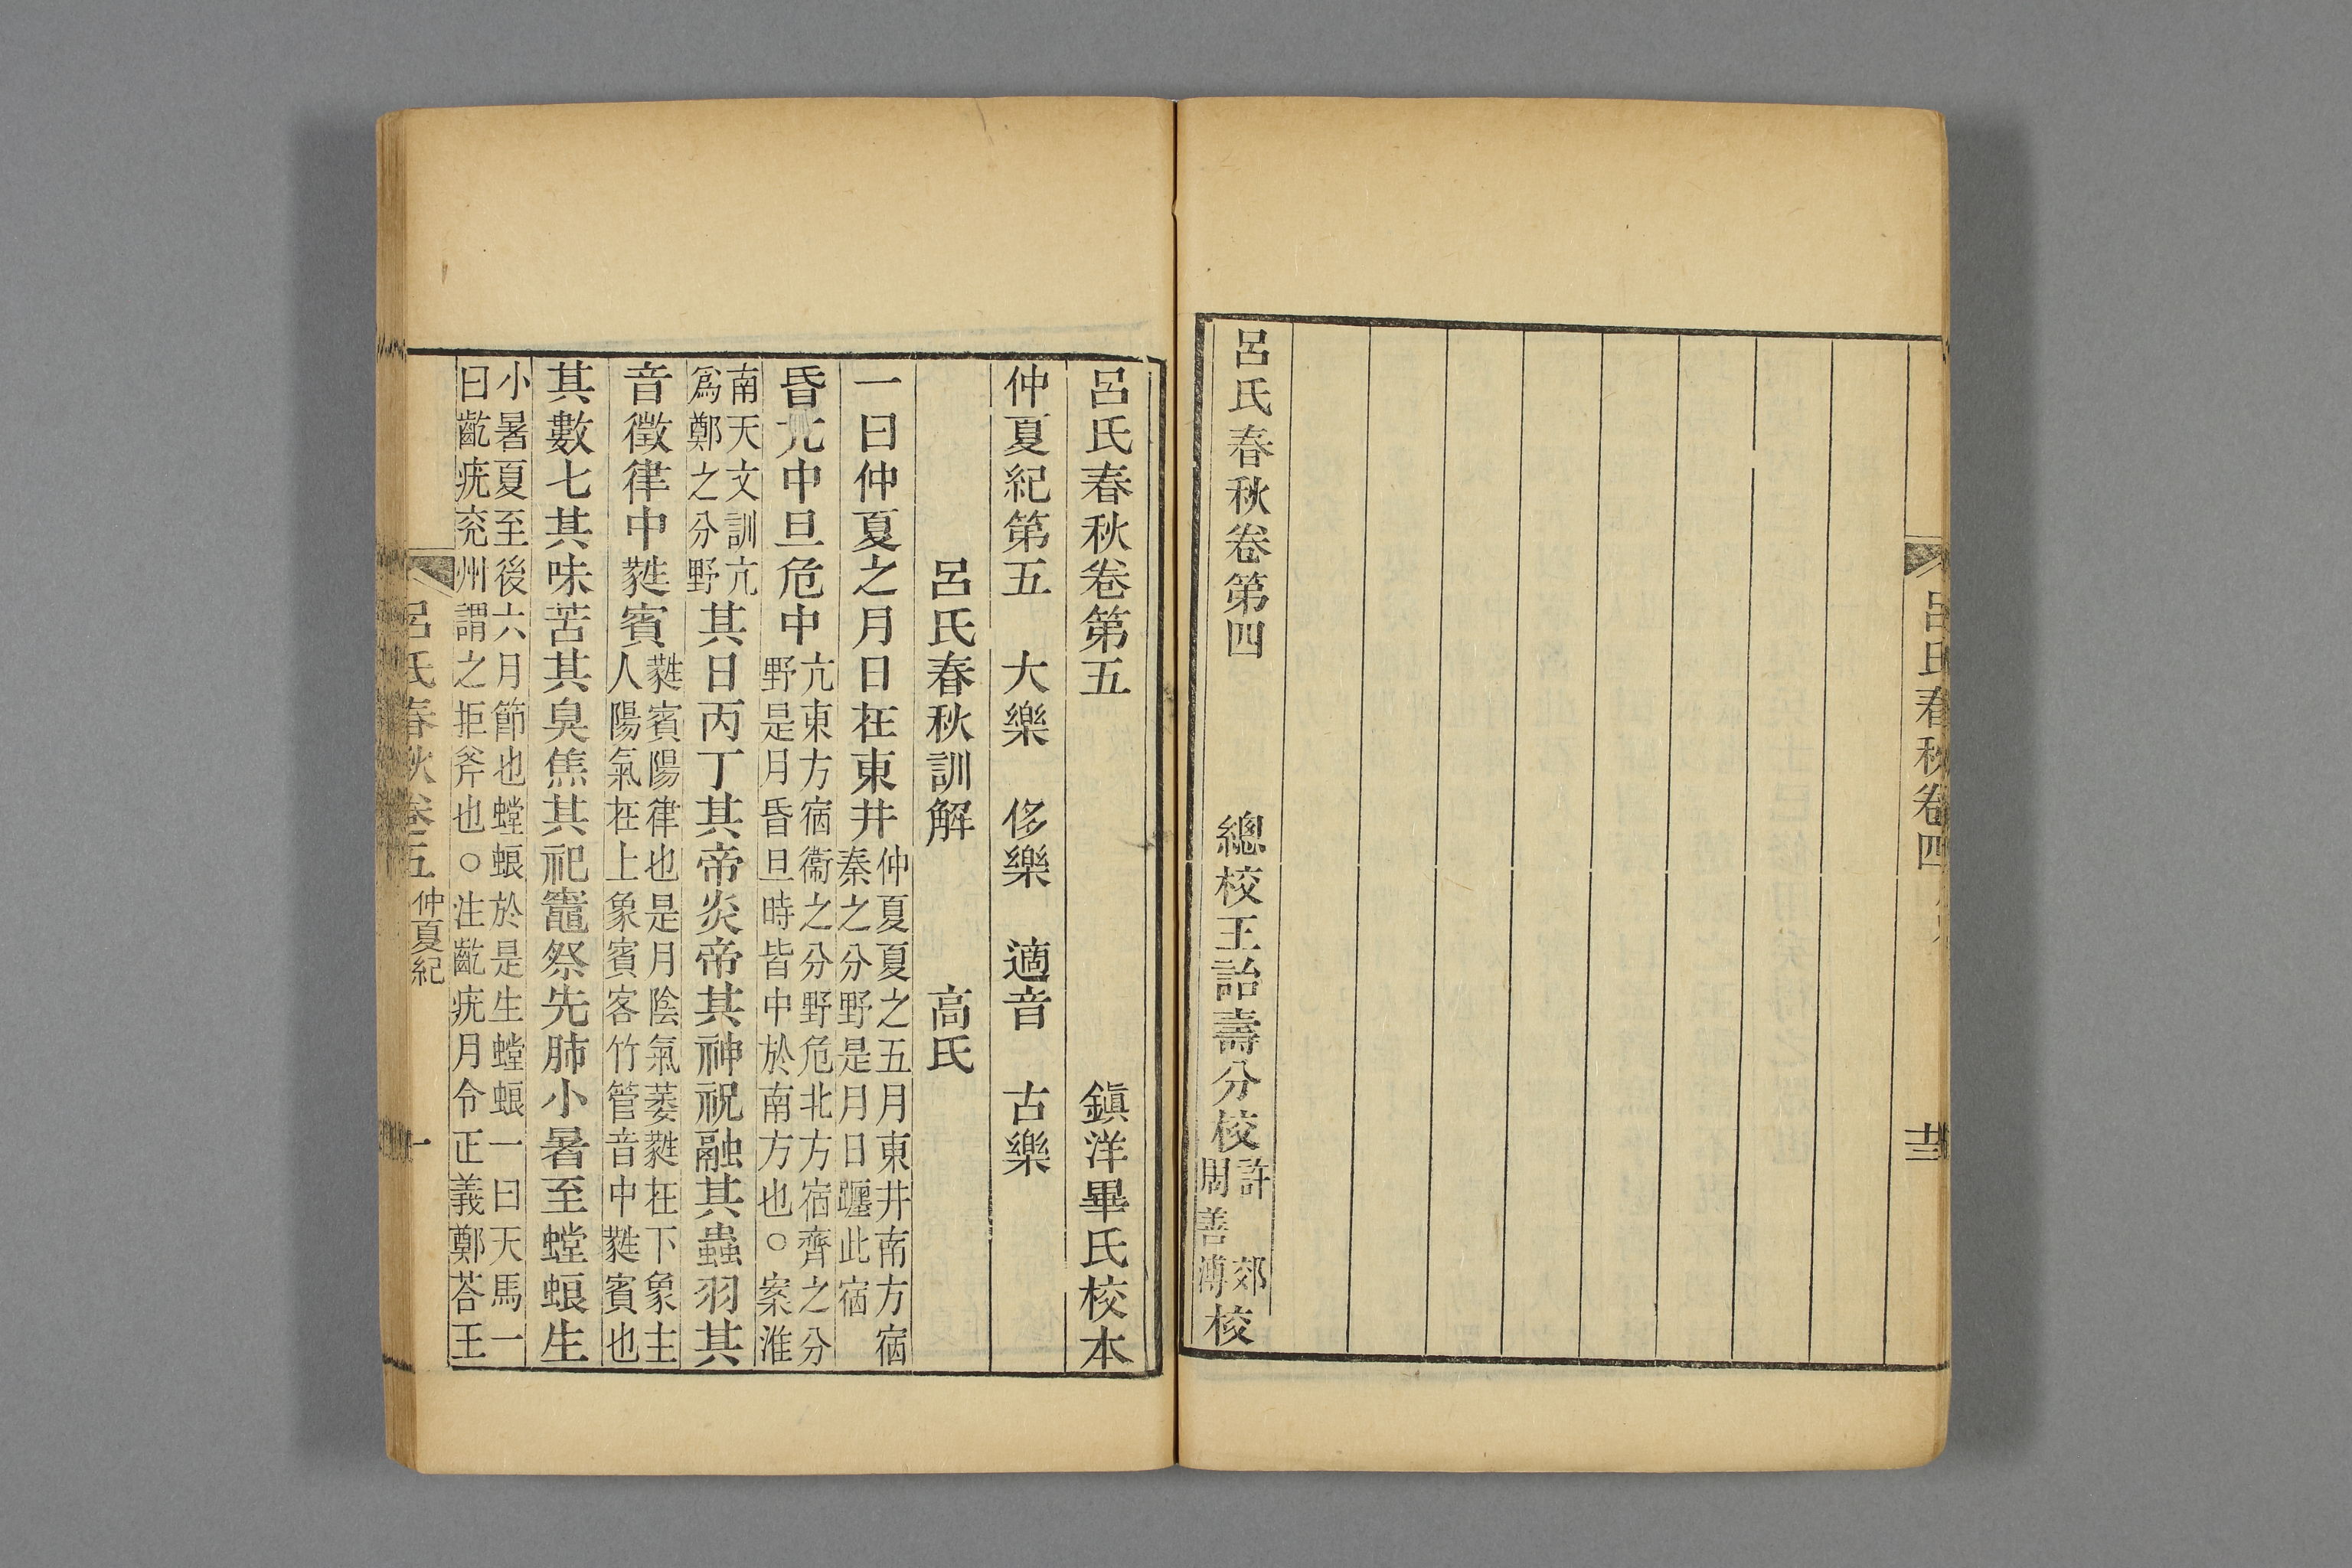 呂氏春秋卷四
十三
呂氏春秋卷第四 總校王詒壽分校許郊周善溥校
呂氏春秋卷第五 鎮洋畢氏校本
仲夏紀第五 大樂 侈樂 適音 古樂
呂氏春秋訓解 高氏
一曰仲夏之月日在東井仲夏夏之五月東井南方宿
秦之分野是月日躔此宿
昏亢中旦危中亢東方宿衞之分野危北方宿齊之分
野是月昏旦時皆中於南方也○案淮
南天文訓亢
爲鄭之分野其日丙丁其帝炎帝其神祝融其蟲羽其
音徵律中蕤賓蕤賓陽律也是月陰氣萎蕤在下象主
人陽氣在上象賓客竹管音中蕤賓也
其數七其味苦其臭焦其祀竈祭先肺小暑至螳蜋生
小暑夏至後六月節也螳蜋於是生螳蜋一曰天馬一
曰齕疣兗州謂之拒斧也○注齕疣月令正義鄭荅王
呂氏春秋卷五 仲夏紀
一